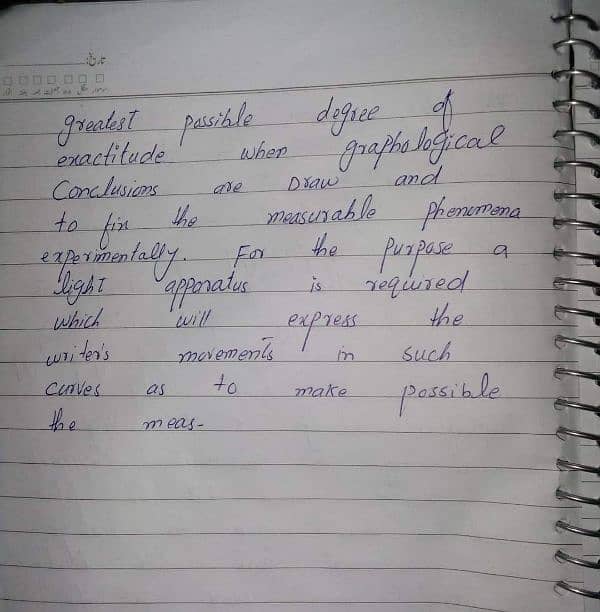 تاریخ:
greatest possible degree of
exactitude when graphological
Conclusions are Draw and
to fix the measurable phenomena
experimentally. For the purpose a
light apparatus is required
which will express the
writer's movements in such
curves as to make possible
the meas-